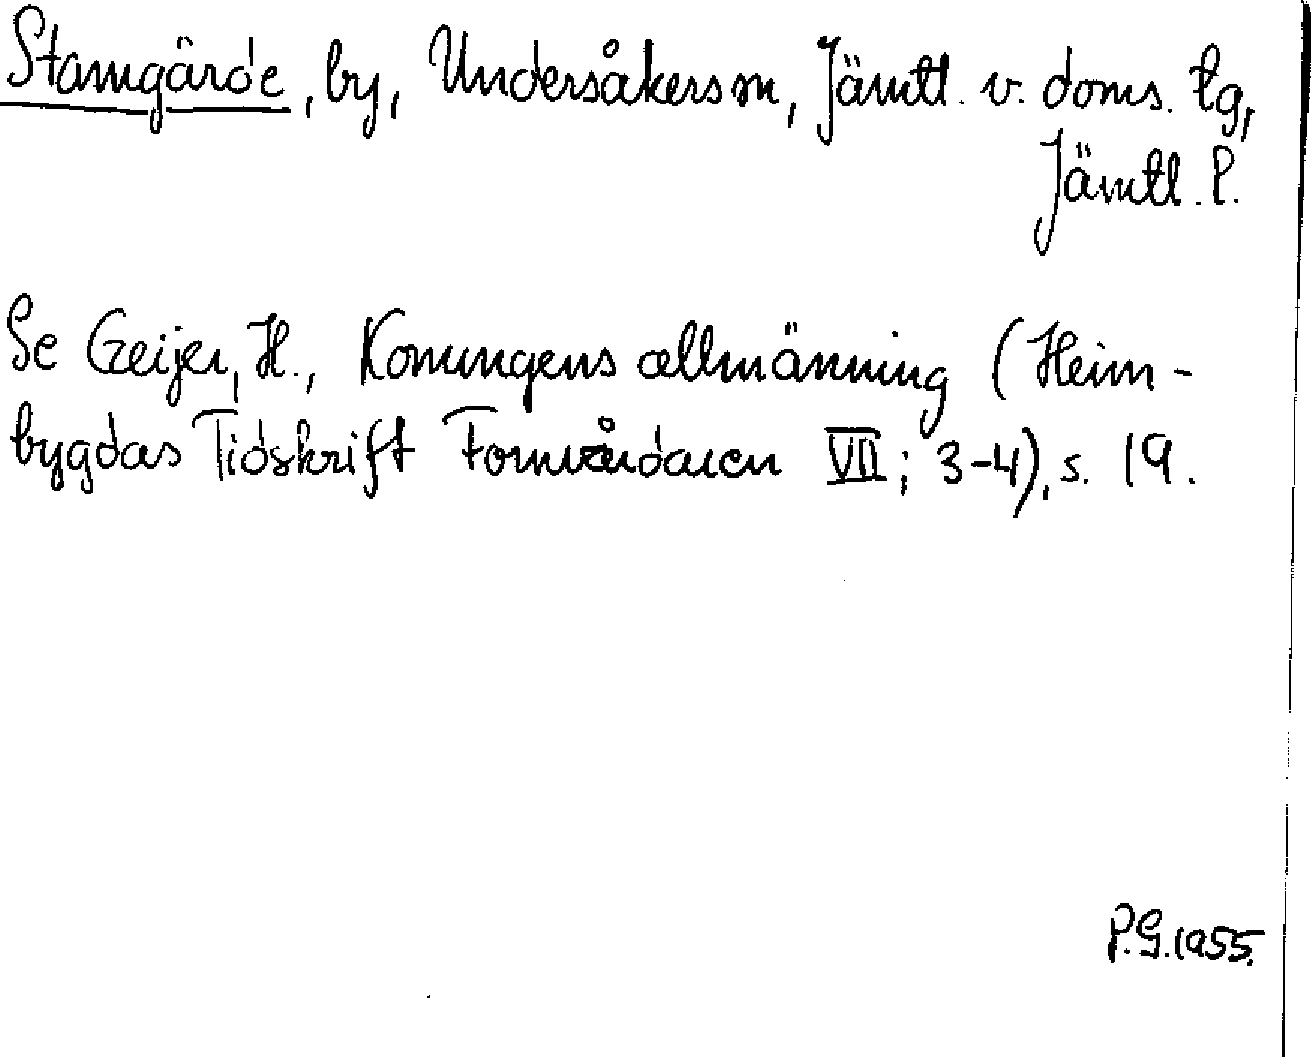 Stamgärde, by, Undersåkers sn, Jämtl. v. doms. tg,
Jämtl. l.
Se Geijer, H., Konungens allmänning (Heim-
bygdas Tidskrift Fornvårdaren VII; 3-4), s. 19.
P.G. 1955.